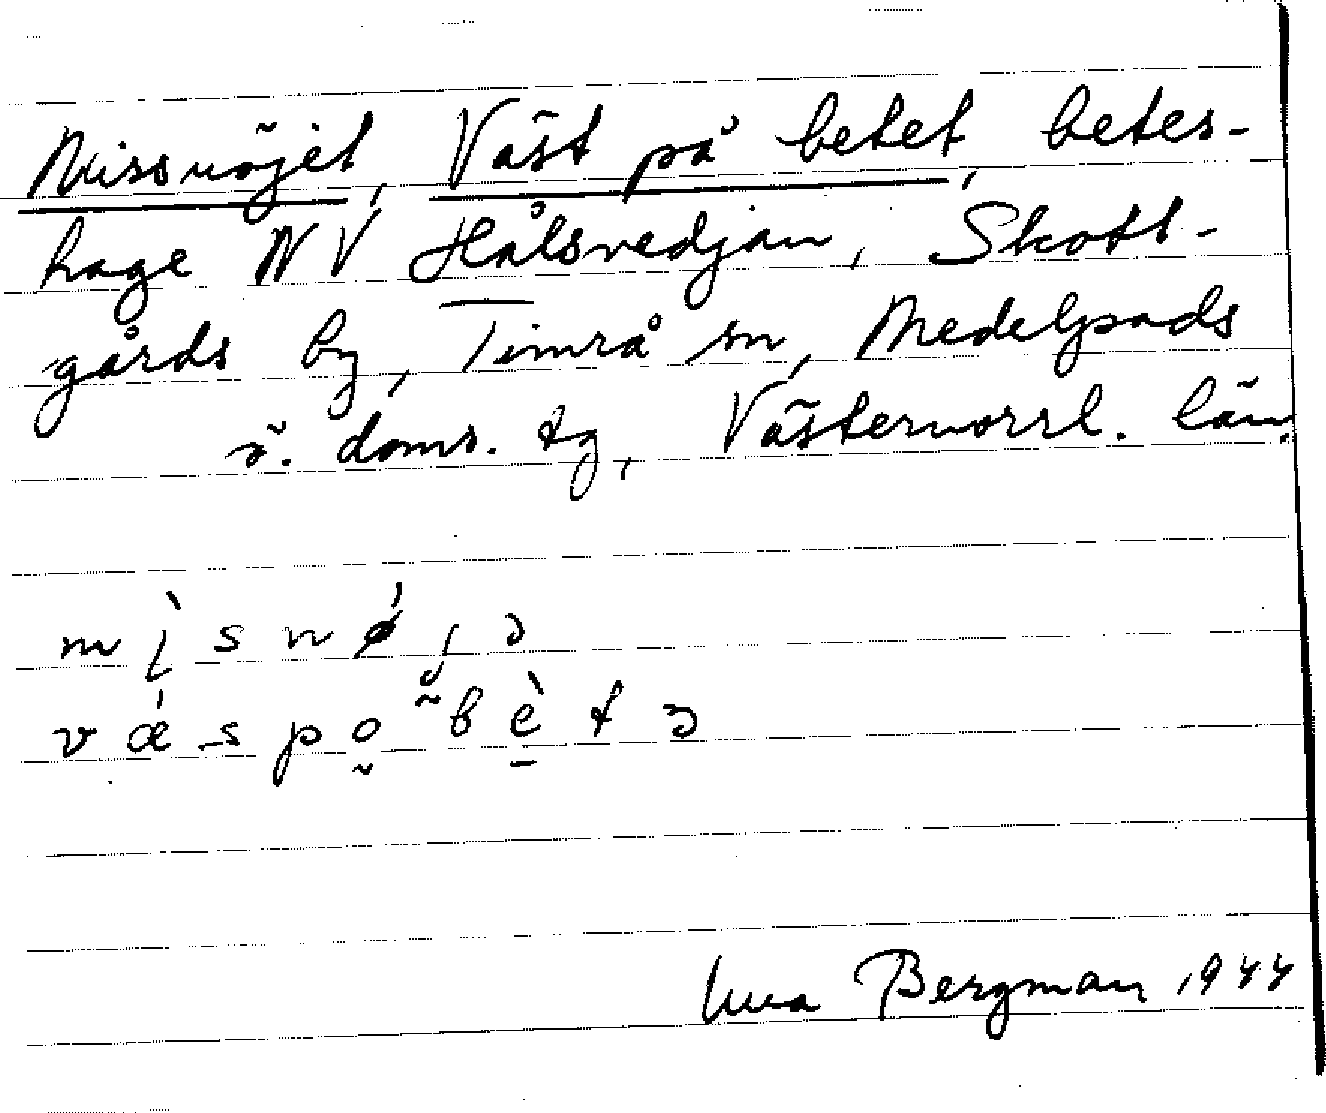 Missnöjet, Väst på betet, betes-
hage NV Hålsvedjan, Skott-
gårds by, Timrå sn, Medelpads
ö. doms. tg, Västernorrl. län.
Bergman 1944